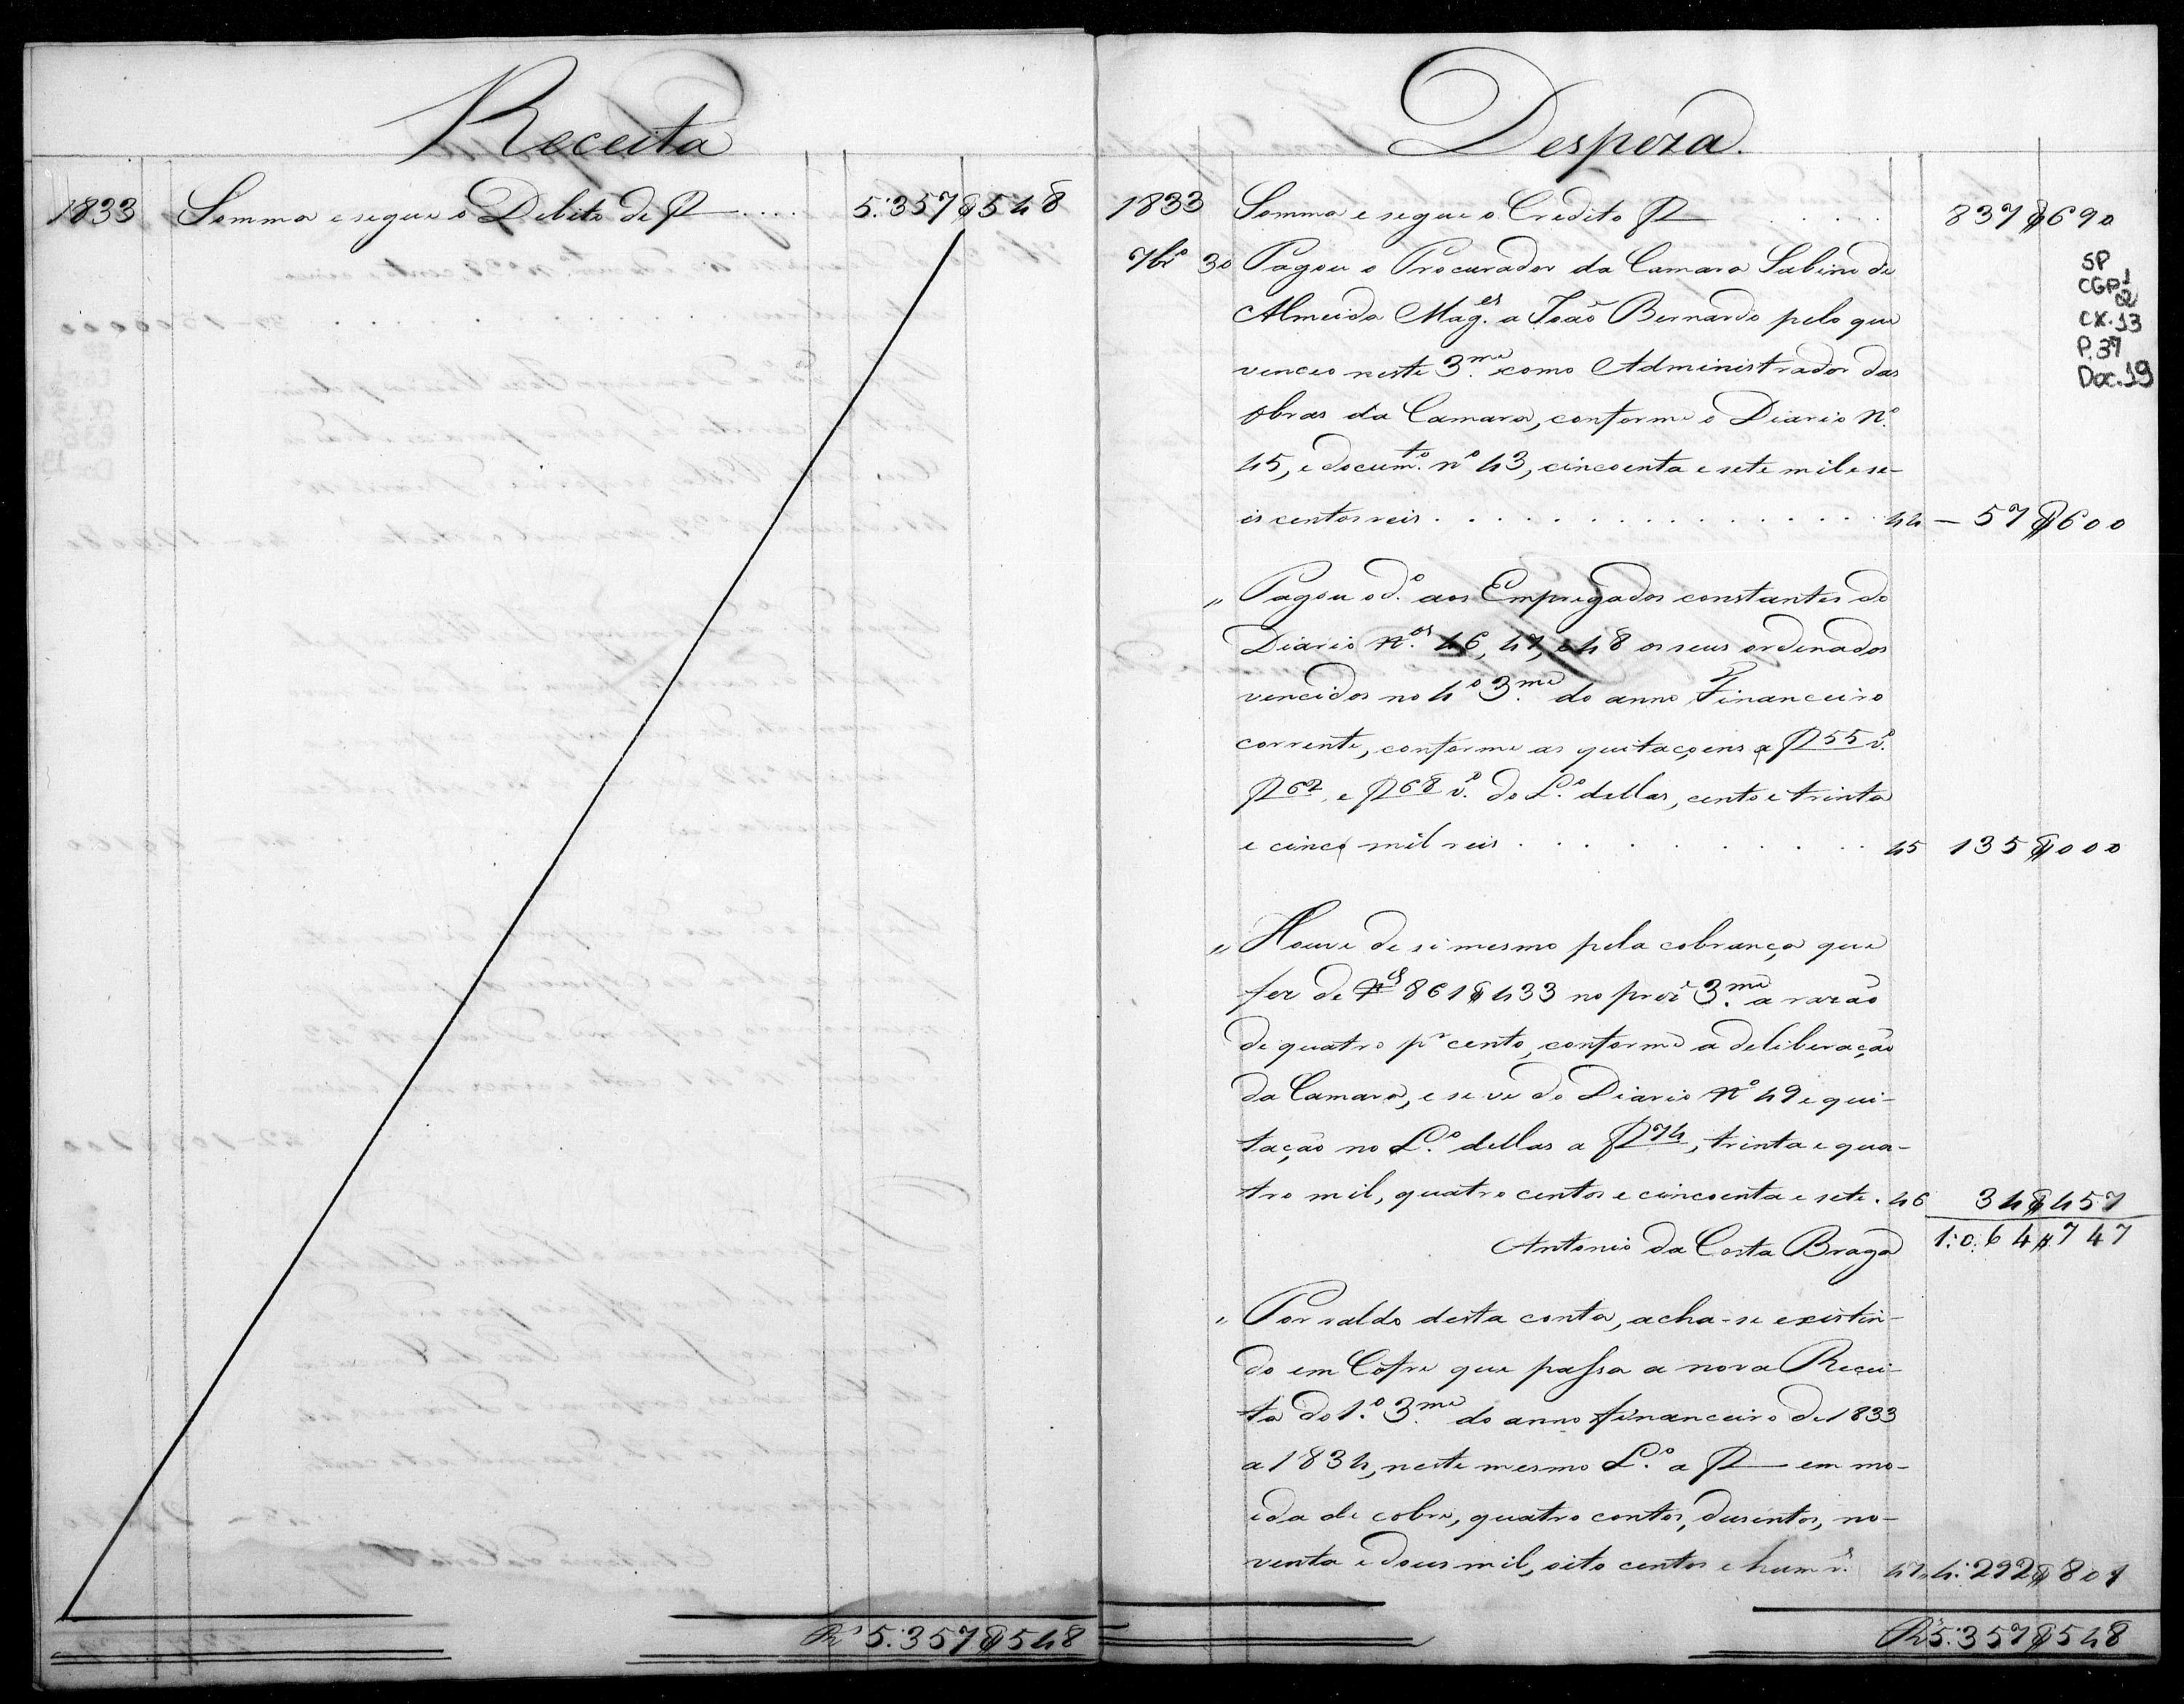 Receita
1833 Somma e segue o Debito de f .... 5:357$548
Rs 5:357$548
Despeza.
1833 Somma e segue o Credito f ..... 837$690
7bro 30 Pagou o Procurador da Camara Sabino de
Almeida Mag.es a João Bernardo pelo que
venceo neste 3.me como Administrador das
obras da Camara, conforme o Diario N.o
45, e docum.to no 43, cincoenta e sete mil e se-
is centos reis . . . . . . . . . . . . . . 44 — 57$600
" Pagou o d.o aos Empregados constantes do
Diario N.os 46, 47, e 48 os seus ordenados
vencidos no 4o 3.me do anno Financeiro
corrente, conforme as quitaçoens a f 55 v.o
f 62, e f 68 v.o do L.o dellas, cento e trinta
e cinco mil reis . . . . . . . . . . . . 45 135$000
" Houve de si mesmo pela cobrança que
fez de Rs 861$433 no prez.e 3.me a razão
de quatro pr cento, conforme a deliberação
da Camara, e se ve do Diario No 49 e qui-
tação no L.o dellas a f 74, trinta e qua-
tro mil, quatro centos e cincoenta e sete . 46 34$457
Antonio da Costa Braga 1:064$747
" Por saldo desta conta, acha-se existin-
do em Cofre que passa a nova Recei-
ta do 1.o 3.me do anno financeiro de 1833
a 1834, neste mesmo L.o a f — em mo-
eda de cobre, quatro contos, duzentos, no-
venta e dous mil, oito centos e hum r.s 47 4:292$801
Rs 5:357$548
SP
CGP1
02
CX.13
P.37
Doc.19